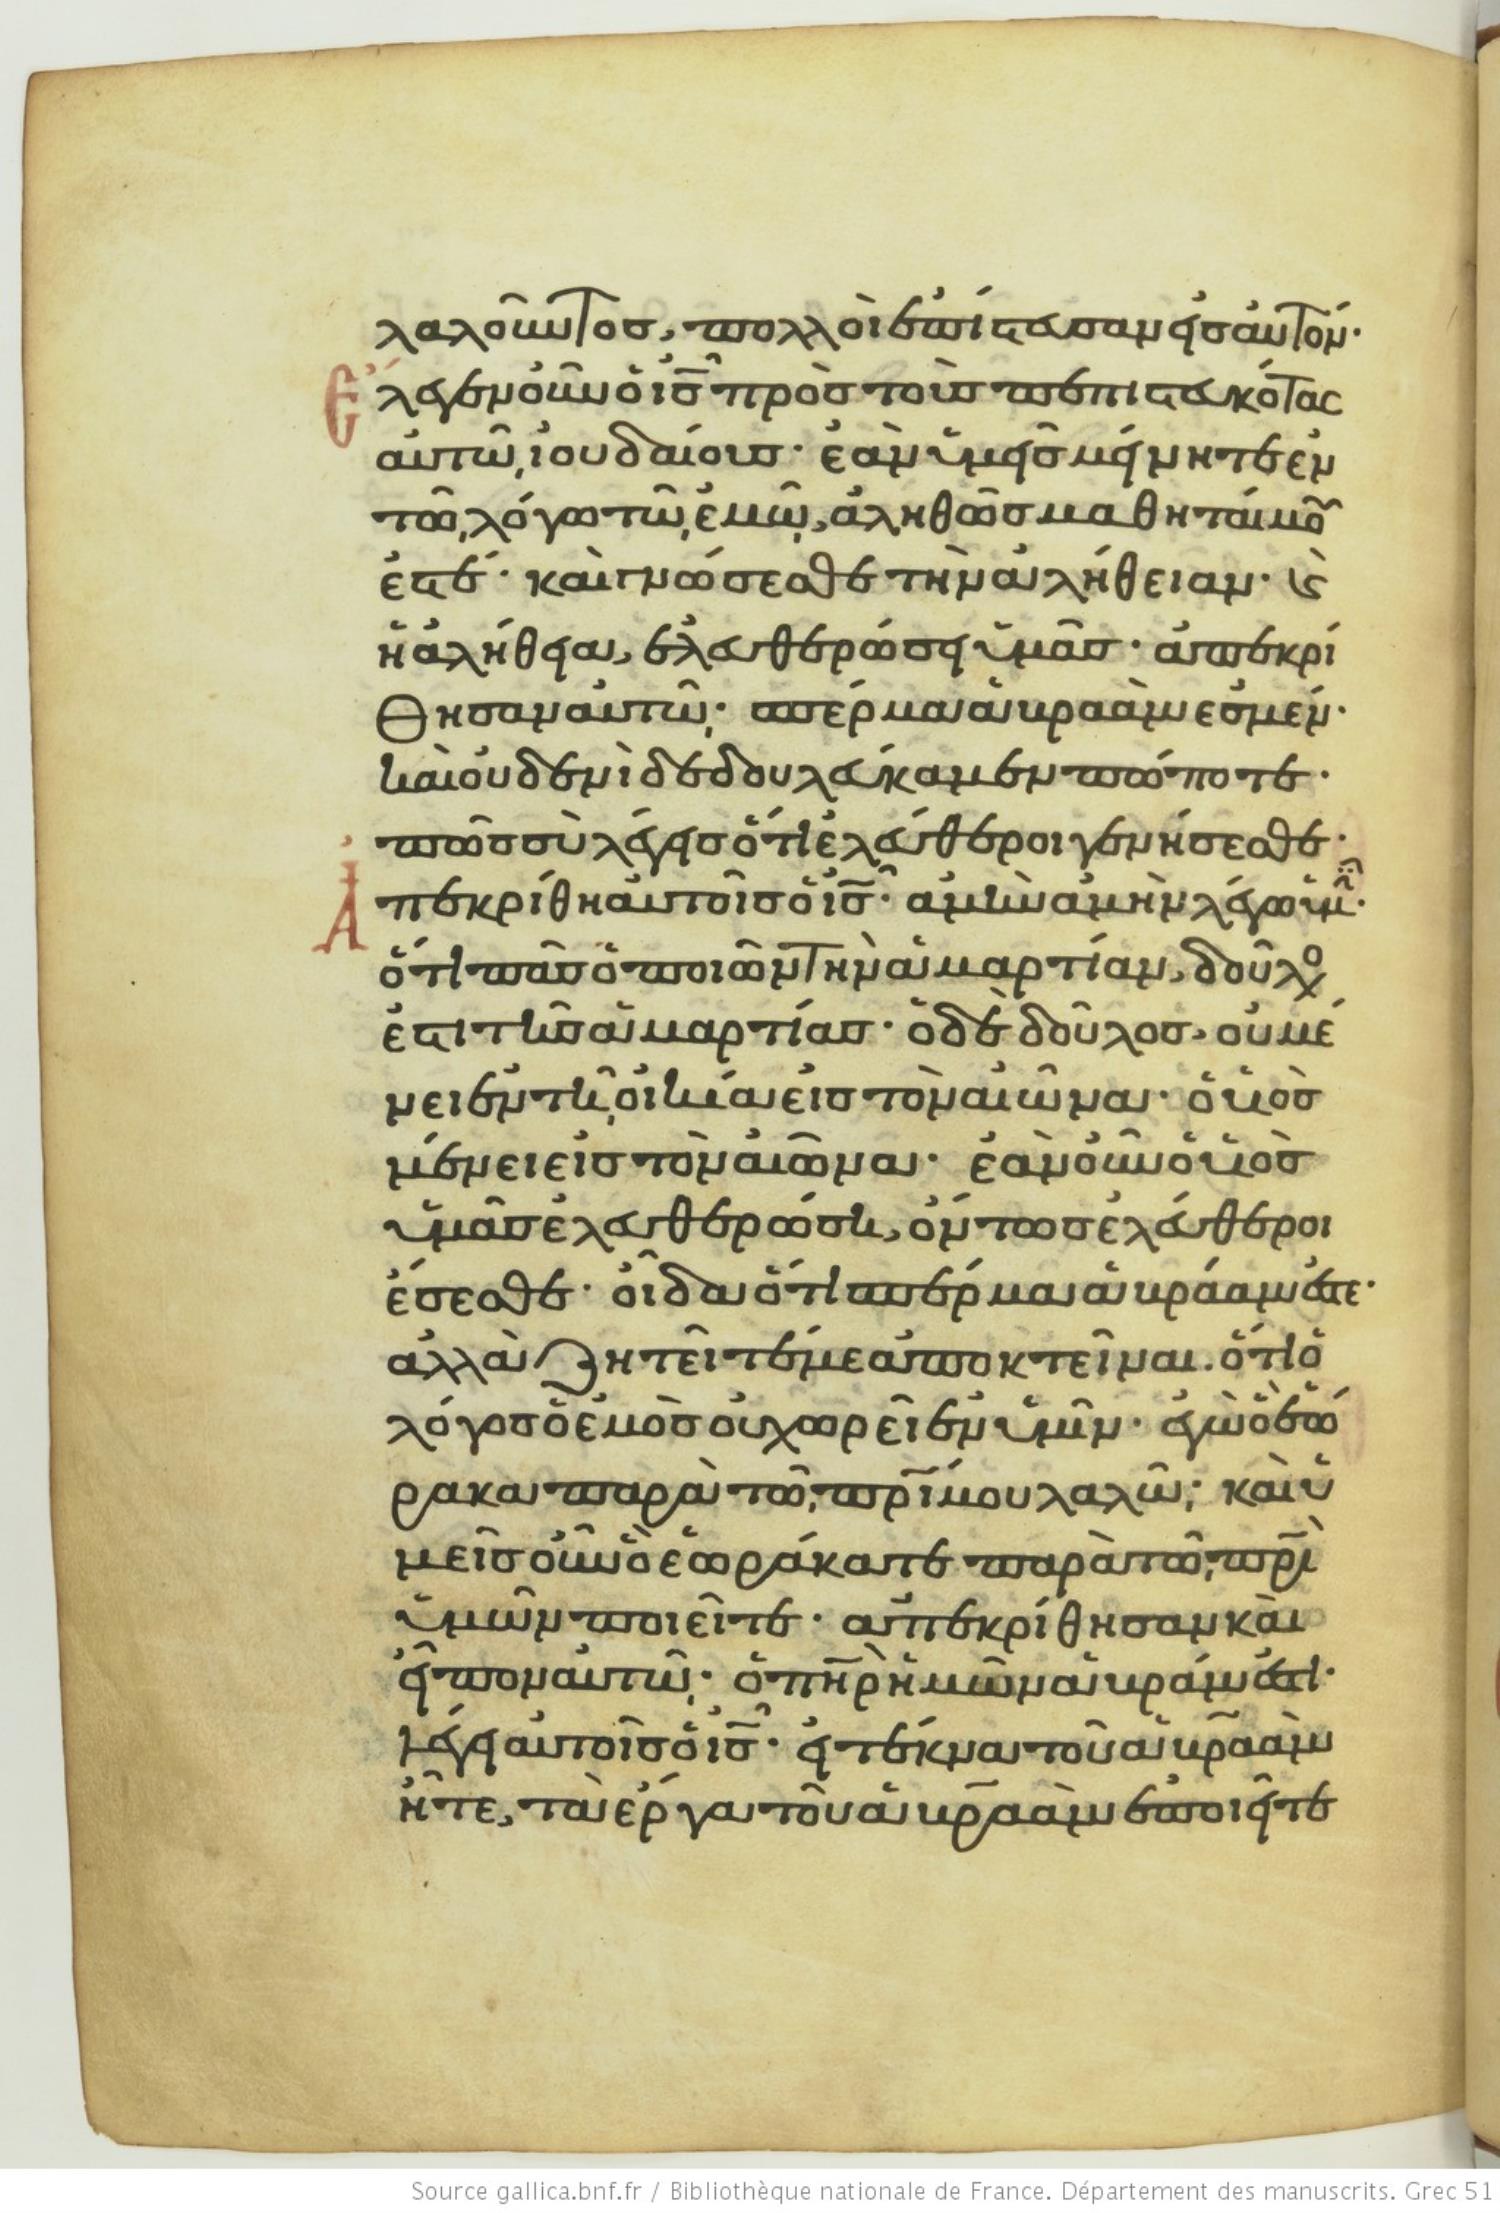 λαλοῦντος, πολλοὶ ἐπίστευσαν εἰς αὐτόν·
Ἔλεγεν οὖν ὁ ις̅ πρὸς τοὺς πεπιστευκότας
αὐτῶ, ἰουδαίους· ἐὰν ὑμεῖς μείνητε ἐν
τῶ λόγω τῶ ἐμῶ, ἀληθῶς μαθηταί μου
ἐστέ· καὶ γνώσεσθε τὴν ἀλήθειαν· ϗ
ἡ ἀλήθεια, ἐλευθερώσει ὑμᾶς· ἀπεκρί
θησαν αὐτῶ· σπέρμα ἀβραάμ ἐσμέν·
καὶ οὐδενὶ δεδουλεύκαμεν πώποτε·
πῶς σὺ λέγεις ὅτι ἐλεύθεροι γενήσεσθε·
Ἀπεκρίθη αὐτοῖς ὁ ις̅· ἀμὴν ἀμὴν λέγω ὑμῖ·
ὅτι πᾶς ὁ ποιῶν τὴν ἁμαρτίαν, δοῦλο
ἐστι τῆς ἁμαρτίας· ὁ δὲ δοῦλος, οὐ μέ
νει ἐν τῆ οἰκία εἰς τὸν αἰῶνα· ὁ υἱὸς
μένει εἰς τὸν αἰῶνα· ἐὰν οὖν ὁ υἱὸς
ὑμᾶς ἐλευθερώση, ὄντως ἐλεύθεροι
ἔσεσθε· οἶδα ὅτι σπέρμα ἀβράαμ ἐστε·
ἀλλὰ ζητεῖτέ με ἀποκτεῖναι. ὅτι ὁ
λόγος ὁ ἐμὸς οὐ χωρεῖ ἐν ὑμῖν· ἐγὼ ὃ ἑώ
ρακα παρὰ τῶ πρ̅ί μου λαλῶ· καὶ ὑ
μεῖς οὖν ὃ ἑωράκατε παρὰ τῶ πρ̅ὶ
ὑμῶν ποιεῖτε· ἀπεκρίθησαν καὶ
εἶπον αὐτῶ· ὁ πη̅ρ ἡμῶν ἀβράμ ἐστι·
λέγει αὐτοῖς ὁ ις̅· εἰ τέκνα τοῦ ἀβρ̅αὰμ
ἦτε, τὰ ἔργα τοῦ ἀβρ̅αὰμ ἐποιεῖτε
Source gallica.bnf.fr / Bibliothèque nationale de France. Département des manuscrits. Grec 51